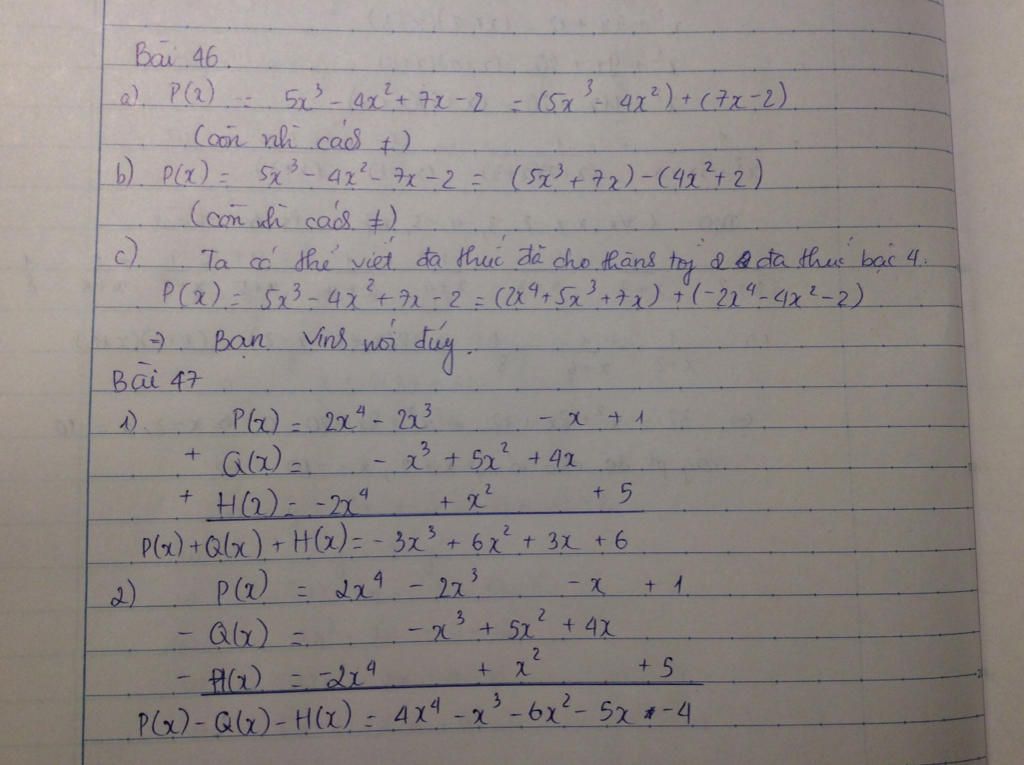 Bài 46.
a) P(x) = 5x³ - 4x² + 7x - 2 = (5x³ - 4x²) + (7x - 2)
(còn nhì cács ≠)
b) P(x) = 5x³ - 4x² - 7x - 2 = (5x³ + 7x) - (4x² + 2)
(còn nhì cács ≠)
c) Ta có thể viết đa thức đã cho thàns tợ 2 đa thức bậc 4.
P(x) = 5x³ - 4x² + 7x - 2 = (2x⁴ + 5x³ + 7x) + (-2x⁴ - 4x² - 2)
=> Bạn Vins nói đúg.
Bài 47
1) P(x) = 2x⁴ - 2x³ - x + 1
+ Q(x) = - x³ + 5x² + 4x
+ H(x) = -2x⁴ + x² + 5
P(x) + Q(x) + H(x) = - 3x³ + 6x² + 3x + 6
2) P(x) = 2x⁴ - 2x³ - x + 1
- Q(x) = - x³ + 5x² + 4x
- H(x) = -2x⁴ + x² + 5
P(x) - Q(x) - H(x) = 4x⁴ - x³ - 6x² - 5x - 4